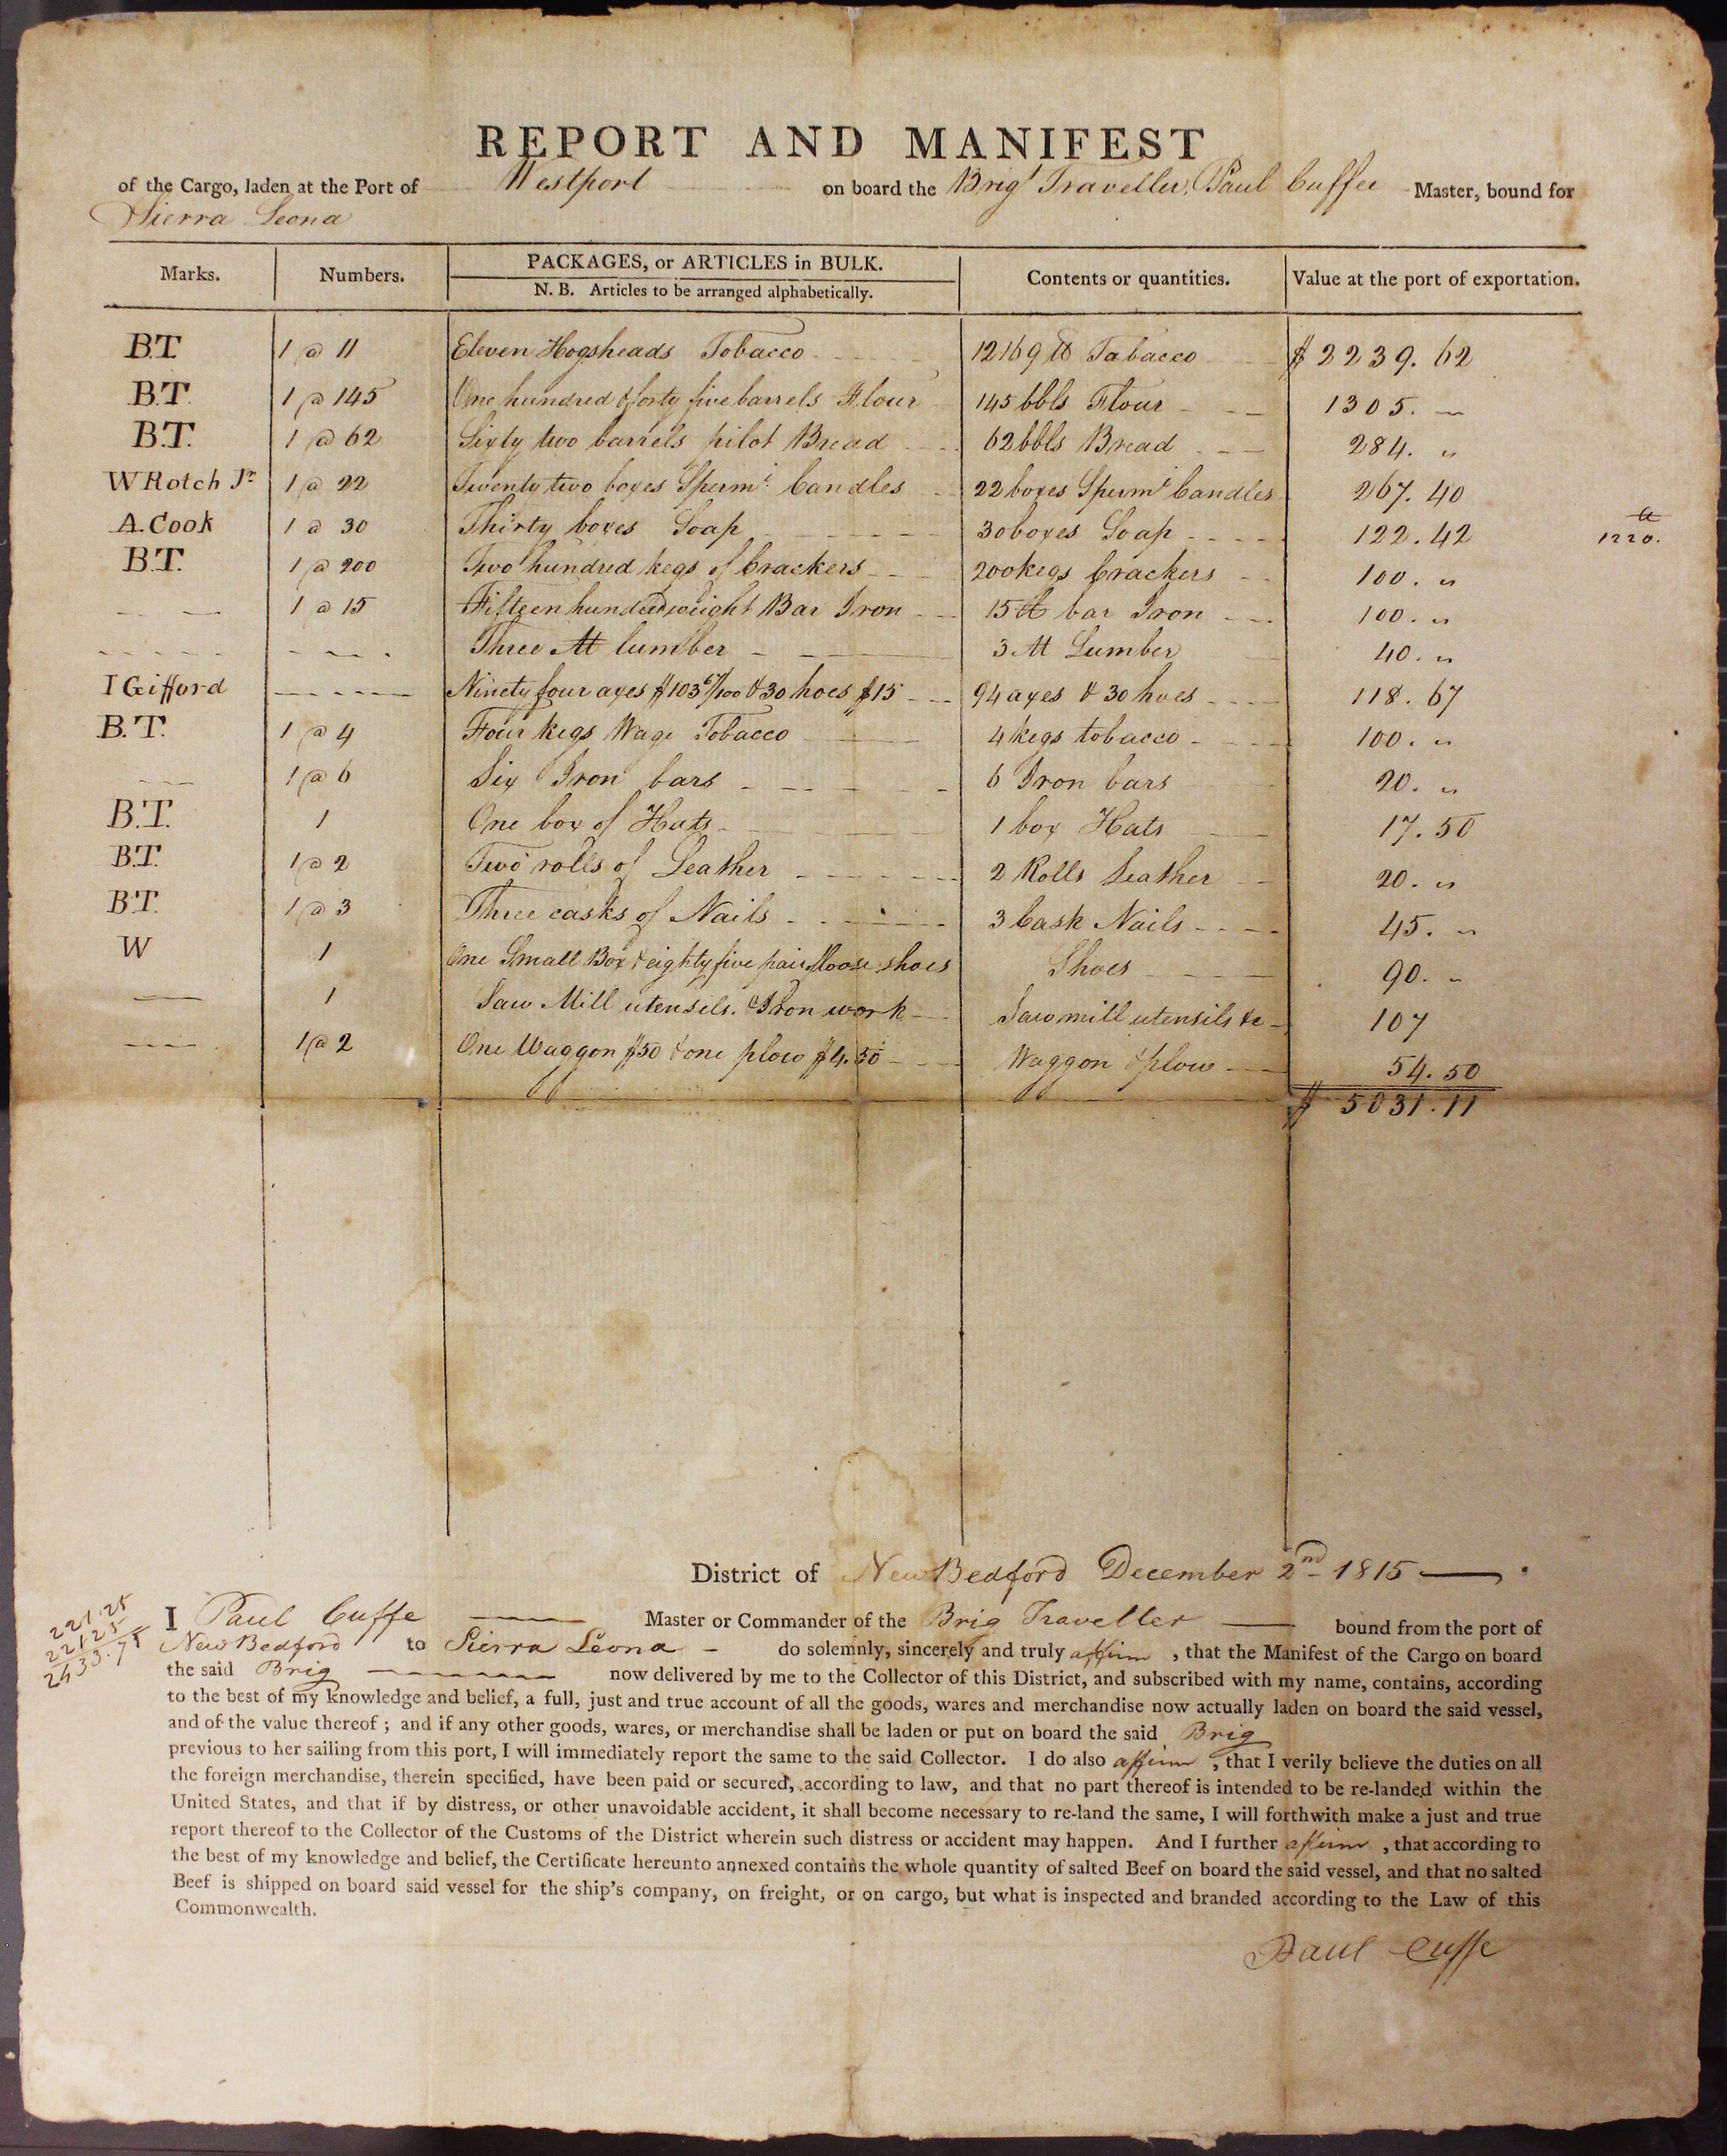 REPORT AND MANIFEST
of the Cargo, laden at the Port of Westport on board the Brigt Traveller, Paul Cuffee Master, bound for
Sierra Leona
Marks. Numbers. PACKAGES, or ARTICLES in BULK. Contents or quantities. Value at the port of exportation.
N. B. Articles to be arranged alphabetically.
B.T. 1 @ 11 Eleven Hogsheads Tobacco 12169 lb Tabacco $ 2239. 62
B.T. 1 @ 145 One hundred & forty five barrels Flour 145 bbls Flour 1305. —
B.T. 1 @ 62 Sixty two barrels pilot Bread 62 bbls Bread 284. "
W Rotch Jr 1 @ 22 Twenty two boxes Spermt Candles 22 boxes Spermt Candles 267. 40
A. Cook 1 @ 30 Thirty boxes Soap 30 boxes Soap 122. 42
1220.
B.T. 1 @ 200 Two hundred kegs of Crackers 200 kegs Crackers 100. "
1 @ 15 Fifteen hundredweight Bar Iron 15 bar Iron 100. "
Three M lumber 3 M Lumber 40. "
I Gifford Ninety four axes $103 67/100 & 30 hoes $15 94 axes & 30 hoes 118. 67
B.T. 1 @ 4 Four kegs Tobacco 4 kegs tobacco 100. "
1 @ 6 Six Iron bars 6 Iron bars 20. "
B.T. 1 One box of Hats 1 box Hats 17. 50
B.T. 1 @ 2 Two rolls of Leather 2 Rolls Leather 20. "
B.T. 1 @ 3 Three casks of Nails 3 Cask Nails 45. "
W 1 One Small Box & eighty five pair loose shoes Shoes 90. "
1 Saw Mill utensils. & Iron work Sawmill utensils &c 107
1 @ 2 One Waggon $50 & one plow $4.50 Waggon & plow 54. 50
$ 5031. 11
District of New Bedford December 2nd 1815
221.25
2212.5
2433.75
I Paul Cuffe Master or Commander of the Brig Traveller bound from the port of
New Bedford to Sierra Leona do solemnly, sincerely and truly affirm , that the Manifest of the Cargo on board
the said Brig now delivered by me to the Collector of this District, and subscribed with my name, contains, according
to the best of my knowledge and belief, a full, just and true account of all the goods, wares and merchandise now actually laden on board the said vessel,
and of the value thereof ; and if any other goods, wares, or merchandise shall be laden or put on board the said Brig
previous to her sailing from this port, I will immediately report the same to the said Collector. I do also affirm , that I verily believe the duties on all
the foreign merchandise, therein specified, have been paid or secured, according to law, and that no part thereof is intended to be re-landed within the
United States, and that if by distress, or other unavoidable accident, it shall become necessary to re-land the same, I will forthwith make a just and true
report thereof to the Collector of the Customs of the District wherein such distress or accident may happen. And I further affirm , that according to
the best of my knowledge and belief, the Certificate hereunto annexed contains the whole quantity of salted Beef on board the said vessel, and that no salted
Beef is shipped on board said vessel for the ship's company, on freight, or on cargo, but what is inspected and branded according to the Law of this
Commonwealth.
Paul Cuffe